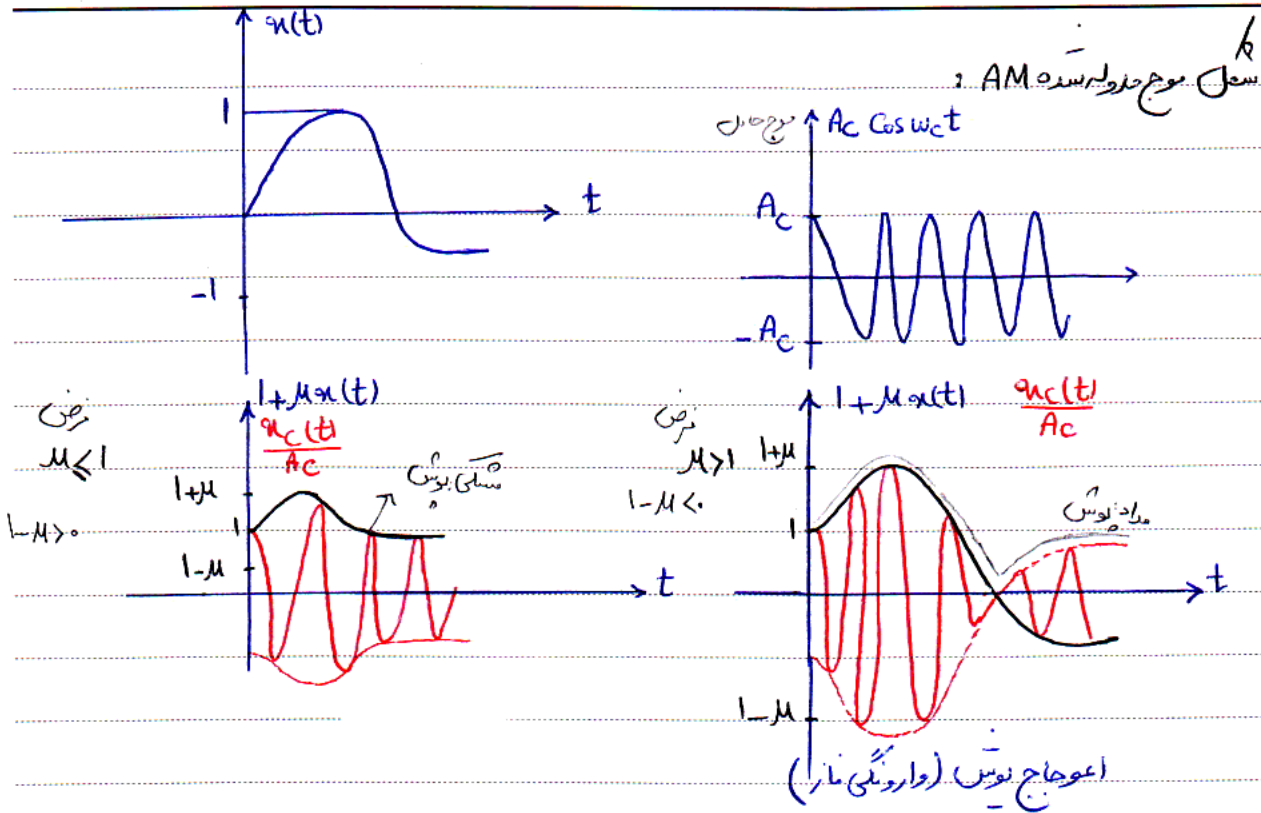 شکل موج مدوله شده AM :
x(t)
1
-1
t
موج حامل
Ac Cos ωct
Ac
-Ac
فرض
μ≤1
1-μ>0
1+μx(t)
xc(t)/Ac
1+μ
1
1-μ
مشکی پوش
t
فرض
μ>1
1-μ<0
1+μx(t)
xc(t)/Ac
1+μ
1
1-μ
مداد: پوش
t
اعوجاج پوش (وارونگی فاز)